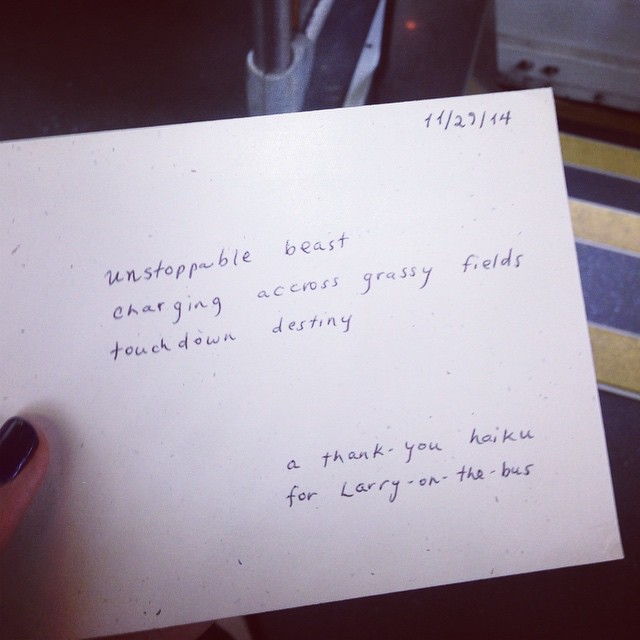 11/29/14
unstoppable beast
charging accross grassy fields
touchdown destiny
a thank-you haiku
for Larry-on-the-bus